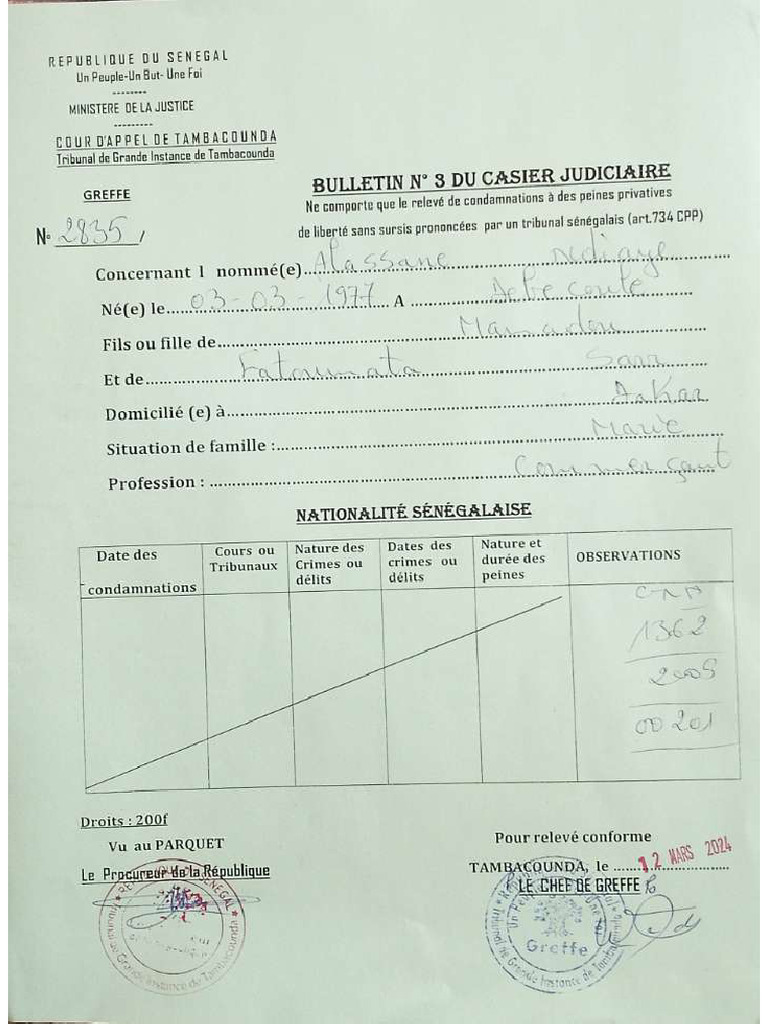 REPUBLIQUE DU SENEGAL
Un Peuple-Un But- Une Foi
MINISTERE DE LA JUSTICE
COUR D'APPEL DE TAMBACOUNDA
Tribunal de Grande Instance de Tambacounda
GREFFE
N° 2835
BULLETIN N° 3 DU CASIER JUDICIAIRE
Ne comporte que le relevé de condamnations à des peines privatives
de liberté sans sursis prononcées par un tribunal sénégalais (art.734 CPP)
Concernant l nommé(e) Alassane Ndiaye
Né(e) le 03-03-1977 A
Fils ou fille de Mamadou
Et de Fatoumata Sarr
Domicilié (e) à Dakar
Situation de famille : Marié
Profession : Commerçant
NATIONALITÉ SÉNÉGALAISE
Date des condamnations
Cours ou Tribunaux
Nature des Crimes ou délits
Dates des crimes ou délits
Nature et durée des peines
OBSERVATIONS
1362
2005
00201
Droits : 200f
Vu au PARQUET
Le Procureur de la République
Pour relevé conforme
TAMBACOUNDA, le 12 MARS 2024
LE CHEF DE GREFFE
Tribunal de Grande Instance de Tambacounda
Greffe
Tribunal de Grande Instance de Tambacounda